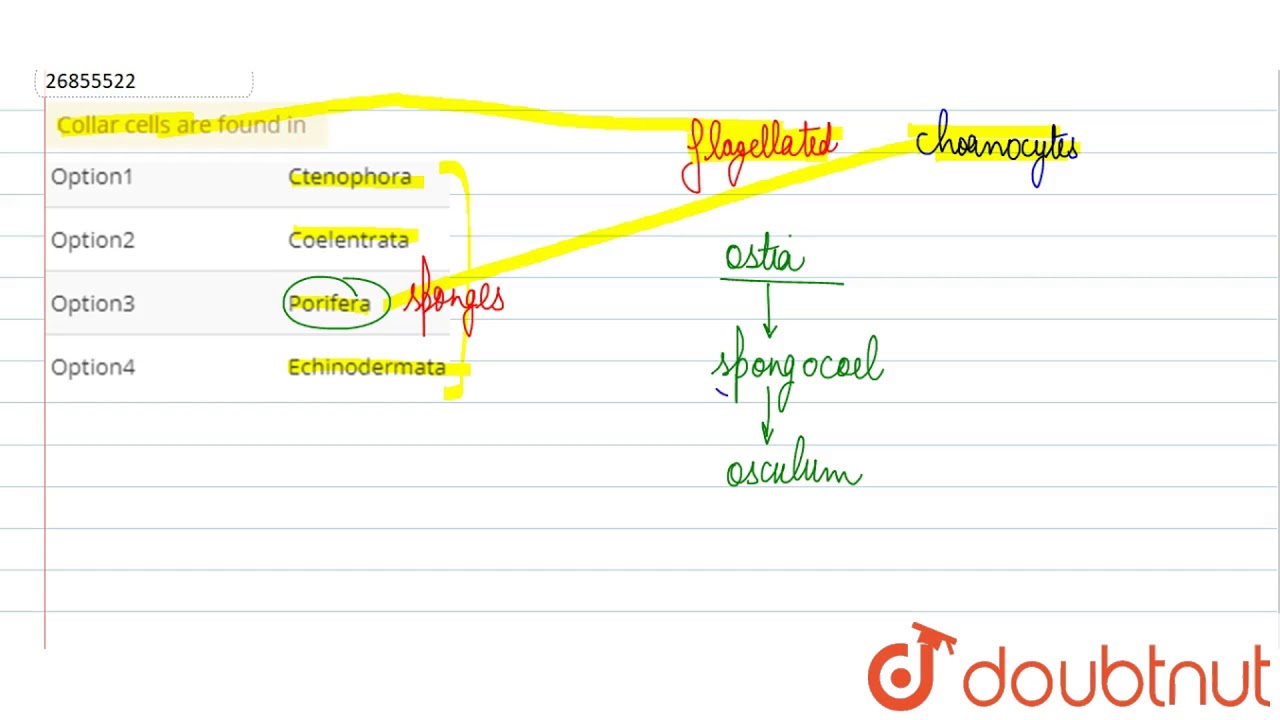 26855522
Collar cells are found in
flagellated
choanocytes
Option1 Ctenophora
Option2 Coelentrata
Option3 Porifera sponges
Option4 Echinodermata
ostia
spongocoel
osculum
doubtnut